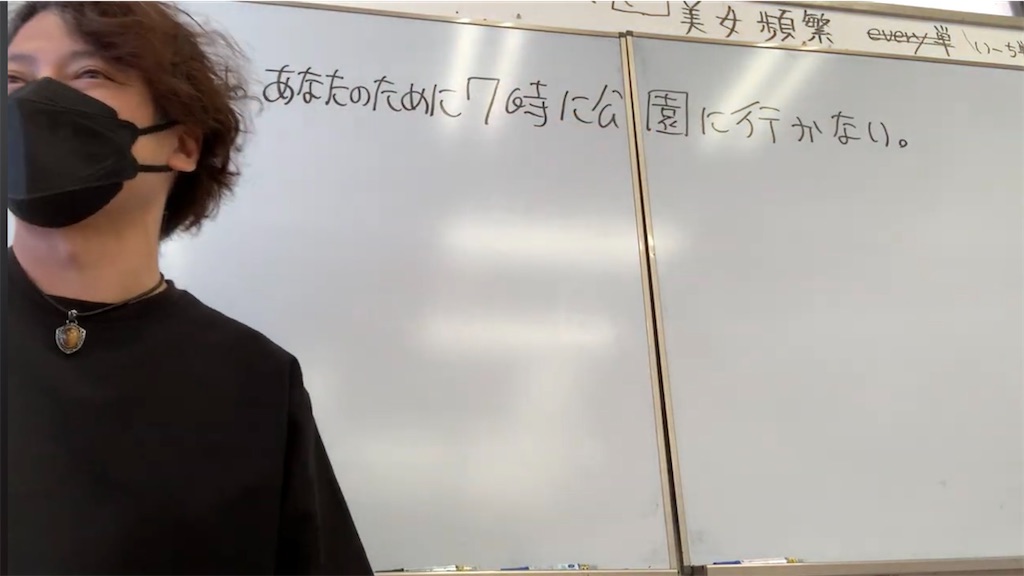 美女頻繁 every
あなたのために7時に公園に行かない。